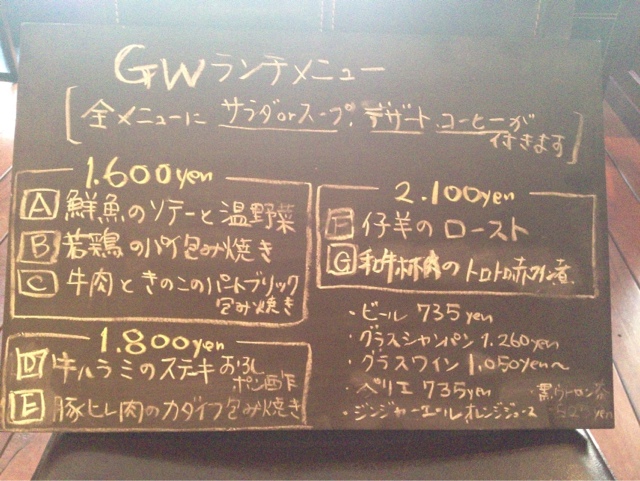 GWランチメニュー
[全メニューに サラダorスープ、デザート、コーヒーが
付きます]
1.600yen
A 鮮魚のソテーと温野菜
B 若鶏のパイ包み焼き
C 牛肉ときのこのパートブリック
包み焼き
1.800yen
D 牛ハラミのステキ おろし
ポン酢
E 豚ヒレ肉のカダイフ包み焼き
2.100yen
F 仔羊のロースト
G 和牛ホホ肉のトロトロ赤ワイン煮
・ビール 735yen
・グラスシャンパン 1.260yen
・グラスワイン 1,050yen〜
・ペリエ 735yen
・黒ウーロン茶
・ジンジャーエール、オレンジジュース
525yen